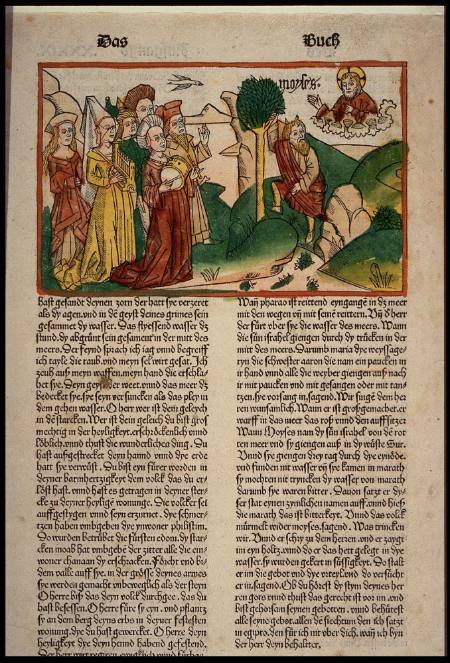 Das Buch
moyses.
hast gesandt deynen zorn der hatt sye verzeret
als dy agen. vnd in dē geyst deines grimes sein
gesammet dy wasser. Das flyessend wasser dz
stund. dy abgrūnt sein gesament in der mitt des
meers. Der feynd sprach ich iag vnnd begreiff
ich tayle die raub. vnd meyn sel wirt gesat. Ich
zeuh auß meyn waffen. meyn hand die erschla
het sye. Deyn geyst weet. vnnd das meer dz
bedecket sye. sye seyn versuncken als das pley in
dem gehen wasser. O herr wer ist dein geleych
in dē starcken. Wer ist dein geleich du bist groß
mechtig in der heyligkeyt. erschröckenlich vnnd
löblich. vnnd thust die wunderlichen ding. Du
hast außgestrecket deyn hannd vnnd dye erde
hatt sye verwüst. Du bist eyn fürer worden in
deyner barmhertzigkeyt dem volck das du er
löst hast. vnnd hast es getragen in deyner ster
cke zu deyner heylige wonung. Die völcker sei
auffgestygen vnnd seyn erzürnet. dye schmer
tzen haben vmbgeben dye ynwoner philistim.
Do wurden betrübet die fürsten edom. dy star
cken moab hat vmbgebē der zitter alle die ein
woner chanaan dy erschracken. Vorcht vnd bi
dem valle auff sye. in der grösse deynes armes
sye werden gemacht vnbeweglich als der steyn
O herre biß das deyn volck durchgee. das du
hast besessen. O herre füre sy eyn. vnd pflantz
sy an dem berg deyns erbs in deyner festesten
wonung. dye du hast geworcket. O herre deyn
heyligkeyt dye deyn hennd habend gefestend.
Der herr wirt regiren ewigklich vnnd fürbas
Wañ pharao ist reittend eyngangē in dz meer
mit den wegen vñ mit seinē reittern. Vñ d herr
der fürt vber sye die wasser des meers. Wann
die sün israhel giengen durch dy trücken in der
mitt des meers. Darumb maria dye weyssage
ryn die schwester aaron die nam ein paucken in
ir hand vnnd alle die weyber giengen auß nach
ir mit paucken vnd mit gesangen oder mit tan
tzen. sye vorsang in. sagend. Wir singē dem her
ren wunsamlich. Wann er ist großgemachet. er
warff in das meer das roß vnnd den auffsitzer
Wann Moyses nam dy sün israhel von dē rot
ten meer vnd sy giengen auß in dy wüste Sur.
Vnnd sye giengen drey tag durch dye eynöde.
vnd funden nit wasser vñ sye kamen in marath
sy mochten nit tryncken dy wasser von marath
darumb sye waren bitter. Dauon satzt er dy
ser stat eynen zymlichen namen auff. vnnd hieß
die marath das ist bitterkeyt. Vnnd das volck
mürmelt wider moyses. sagend. Was trincken
wir. Vnnd er schry zu dem herren. vnd er zaygt
im eyn holtz. vnnd do er das hett gelegt in dye
wasser. sy wurden gekert in süssigkeyt. Do stalt
er im die gebot vnd dye vrteyl. vnd do versücht
er in. sagend. Ob du hörest dy stym deynes her
ren gots vnnd thust das gerecht ist vor im. vnd
bist gehorsam seynen geboten. vnnd behütest
alle seyne gebot. allen dē siechtum den ich satzt
in egypto. den für ich nit vber dich. wañ ich byn
der herr deyn behalter.